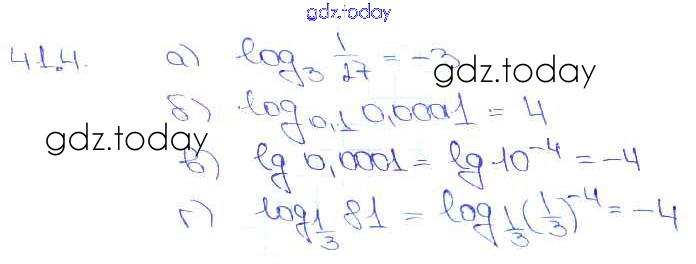 gdz.today
41.4. а) log₃ 1/27 = -3
gdz.today
б) log₀,₁ 0,0001 = 4
gdz.today
в) lg 0,0001 = lg 10⁻⁴ = -4
г) log₁/₃ 81 = log₁/₃ (1/3)⁻⁴ = -4